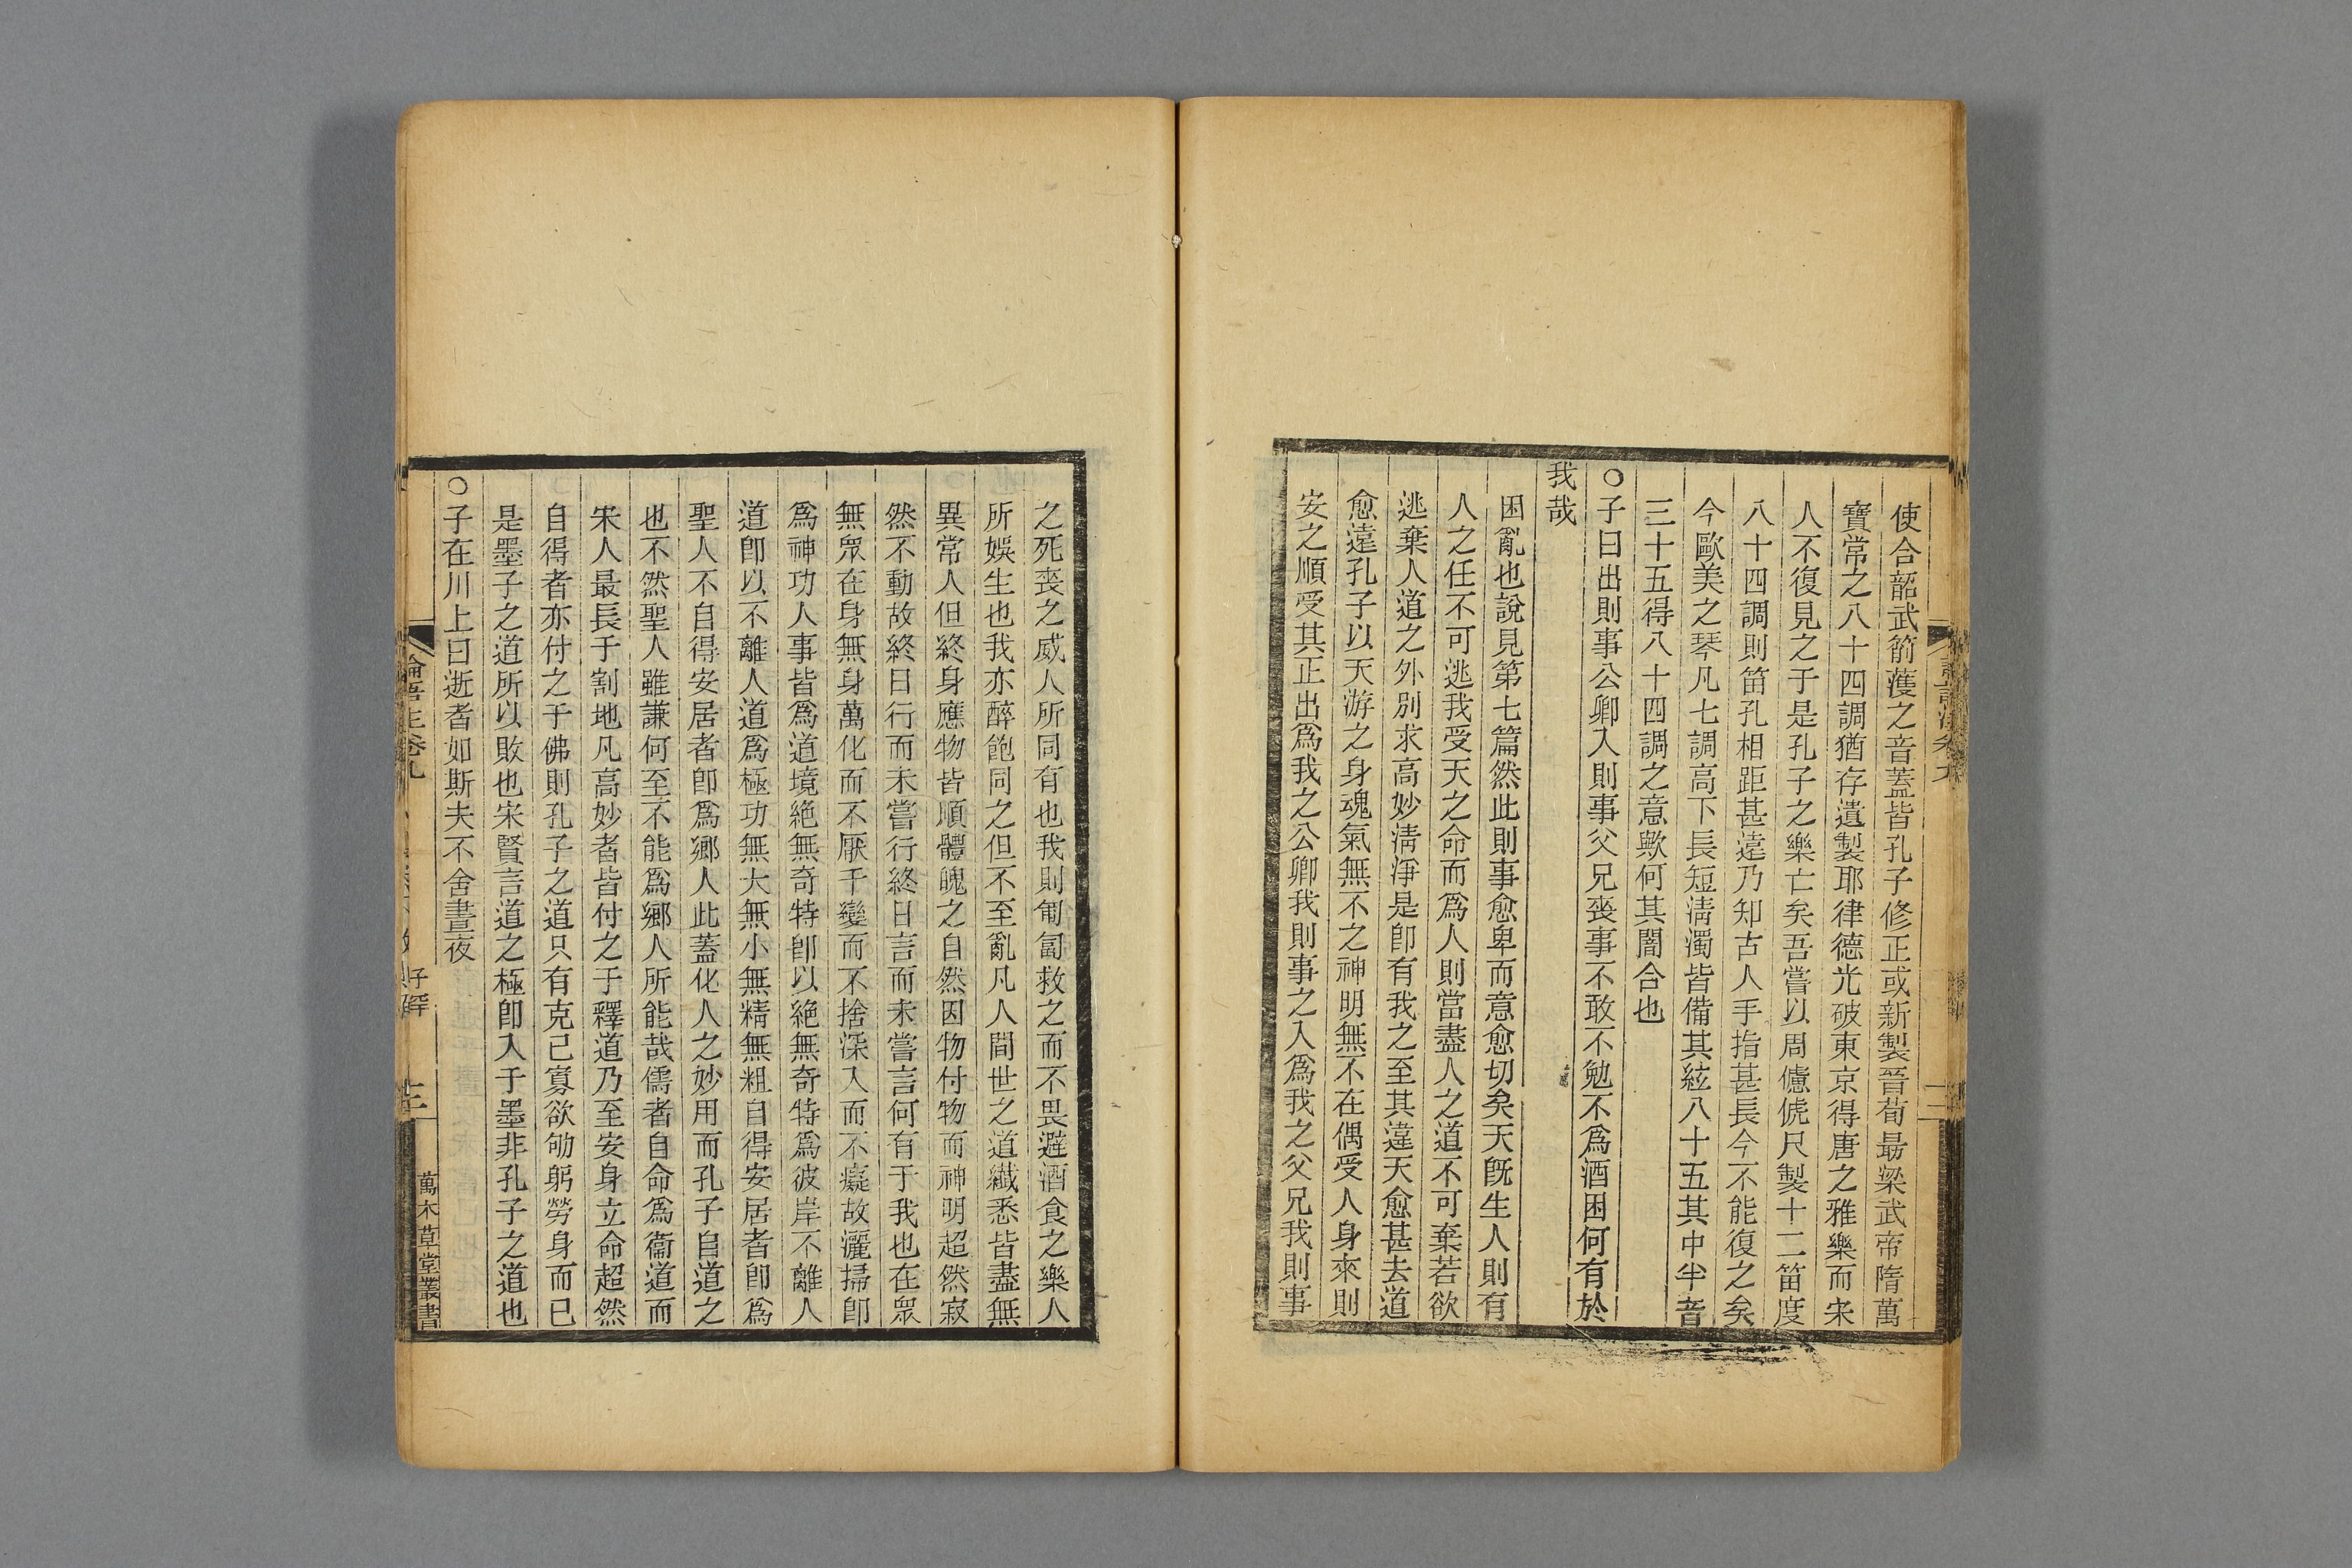 使合韶武箾濩之音蓋皆孔子修正或新製晉荀勗梁武帝隋萬
寶常之八十四調猶存遺製耶律德光破東京得唐之雅樂而宋
人不復見之于是孔子之樂亡矣吾嘗以周儊俿尺製十二笛度
八十四調則笛孔相距甚遠乃知古人手指甚長今不能復之矣
今歐美之琴凡七調高下長短淸濁皆備其絃八十五其中半音
三十五得八十四調之意歟何其闇合也
○子曰出則事公卿入則事父兄喪事不敢不勉不爲酒困何有於
我哉
困亂也說見第七篇然此則事愈卑而意愈切矣天旣生人則有
人之任不可逃我受天之命而爲人則當盡人之道不可棄若欲
逃棄人道之外別求高妙淸淨是卽有我之至其違天愈甚去道
愈遠孔子以天游之身魂氣無不之神明無不在偶受人身來則
安之順受其正出爲我之公卿我則事之入爲我之父兄我則事
之死喪之威人所同有也我則匍匐救之而不畏避酒食之樂人
所娛生也我亦醉飽同之但不至亂凡人間世之道纖悉皆盡無
異常人但終身應物皆順體魄之自然因物付物而神明超然寂
然不動故終日行而未嘗行終日言而未嘗言何有于我也在眾
無眾在身無身萬化而不厭千變而不捨深入而不癡故灑掃卽
爲神功人事皆爲道境絕無奇特卽以絕無奇特爲彼岸不離人
道卽以不離人道爲極功無大無小無精無粗自得安居者卽爲
聖人不自得安居者卽爲鄕人此蓋化人之妙用而孔子自道之
也不然聖人雖謙何至不能爲鄕人所能哉儒者自命爲衞道而
宋人最長于割地凡高妙者皆付之于釋道乃至安身立命超然
自得者亦付之于佛則孔子之道只有克己寡欲劬躬勞身而已
是墨子之道所以敗也宋賢言道之極卽入于墨非孔子之道也
○子在川上曰逝者如斯夫不舍晝夜
論語注卷九
萬木草堂叢書